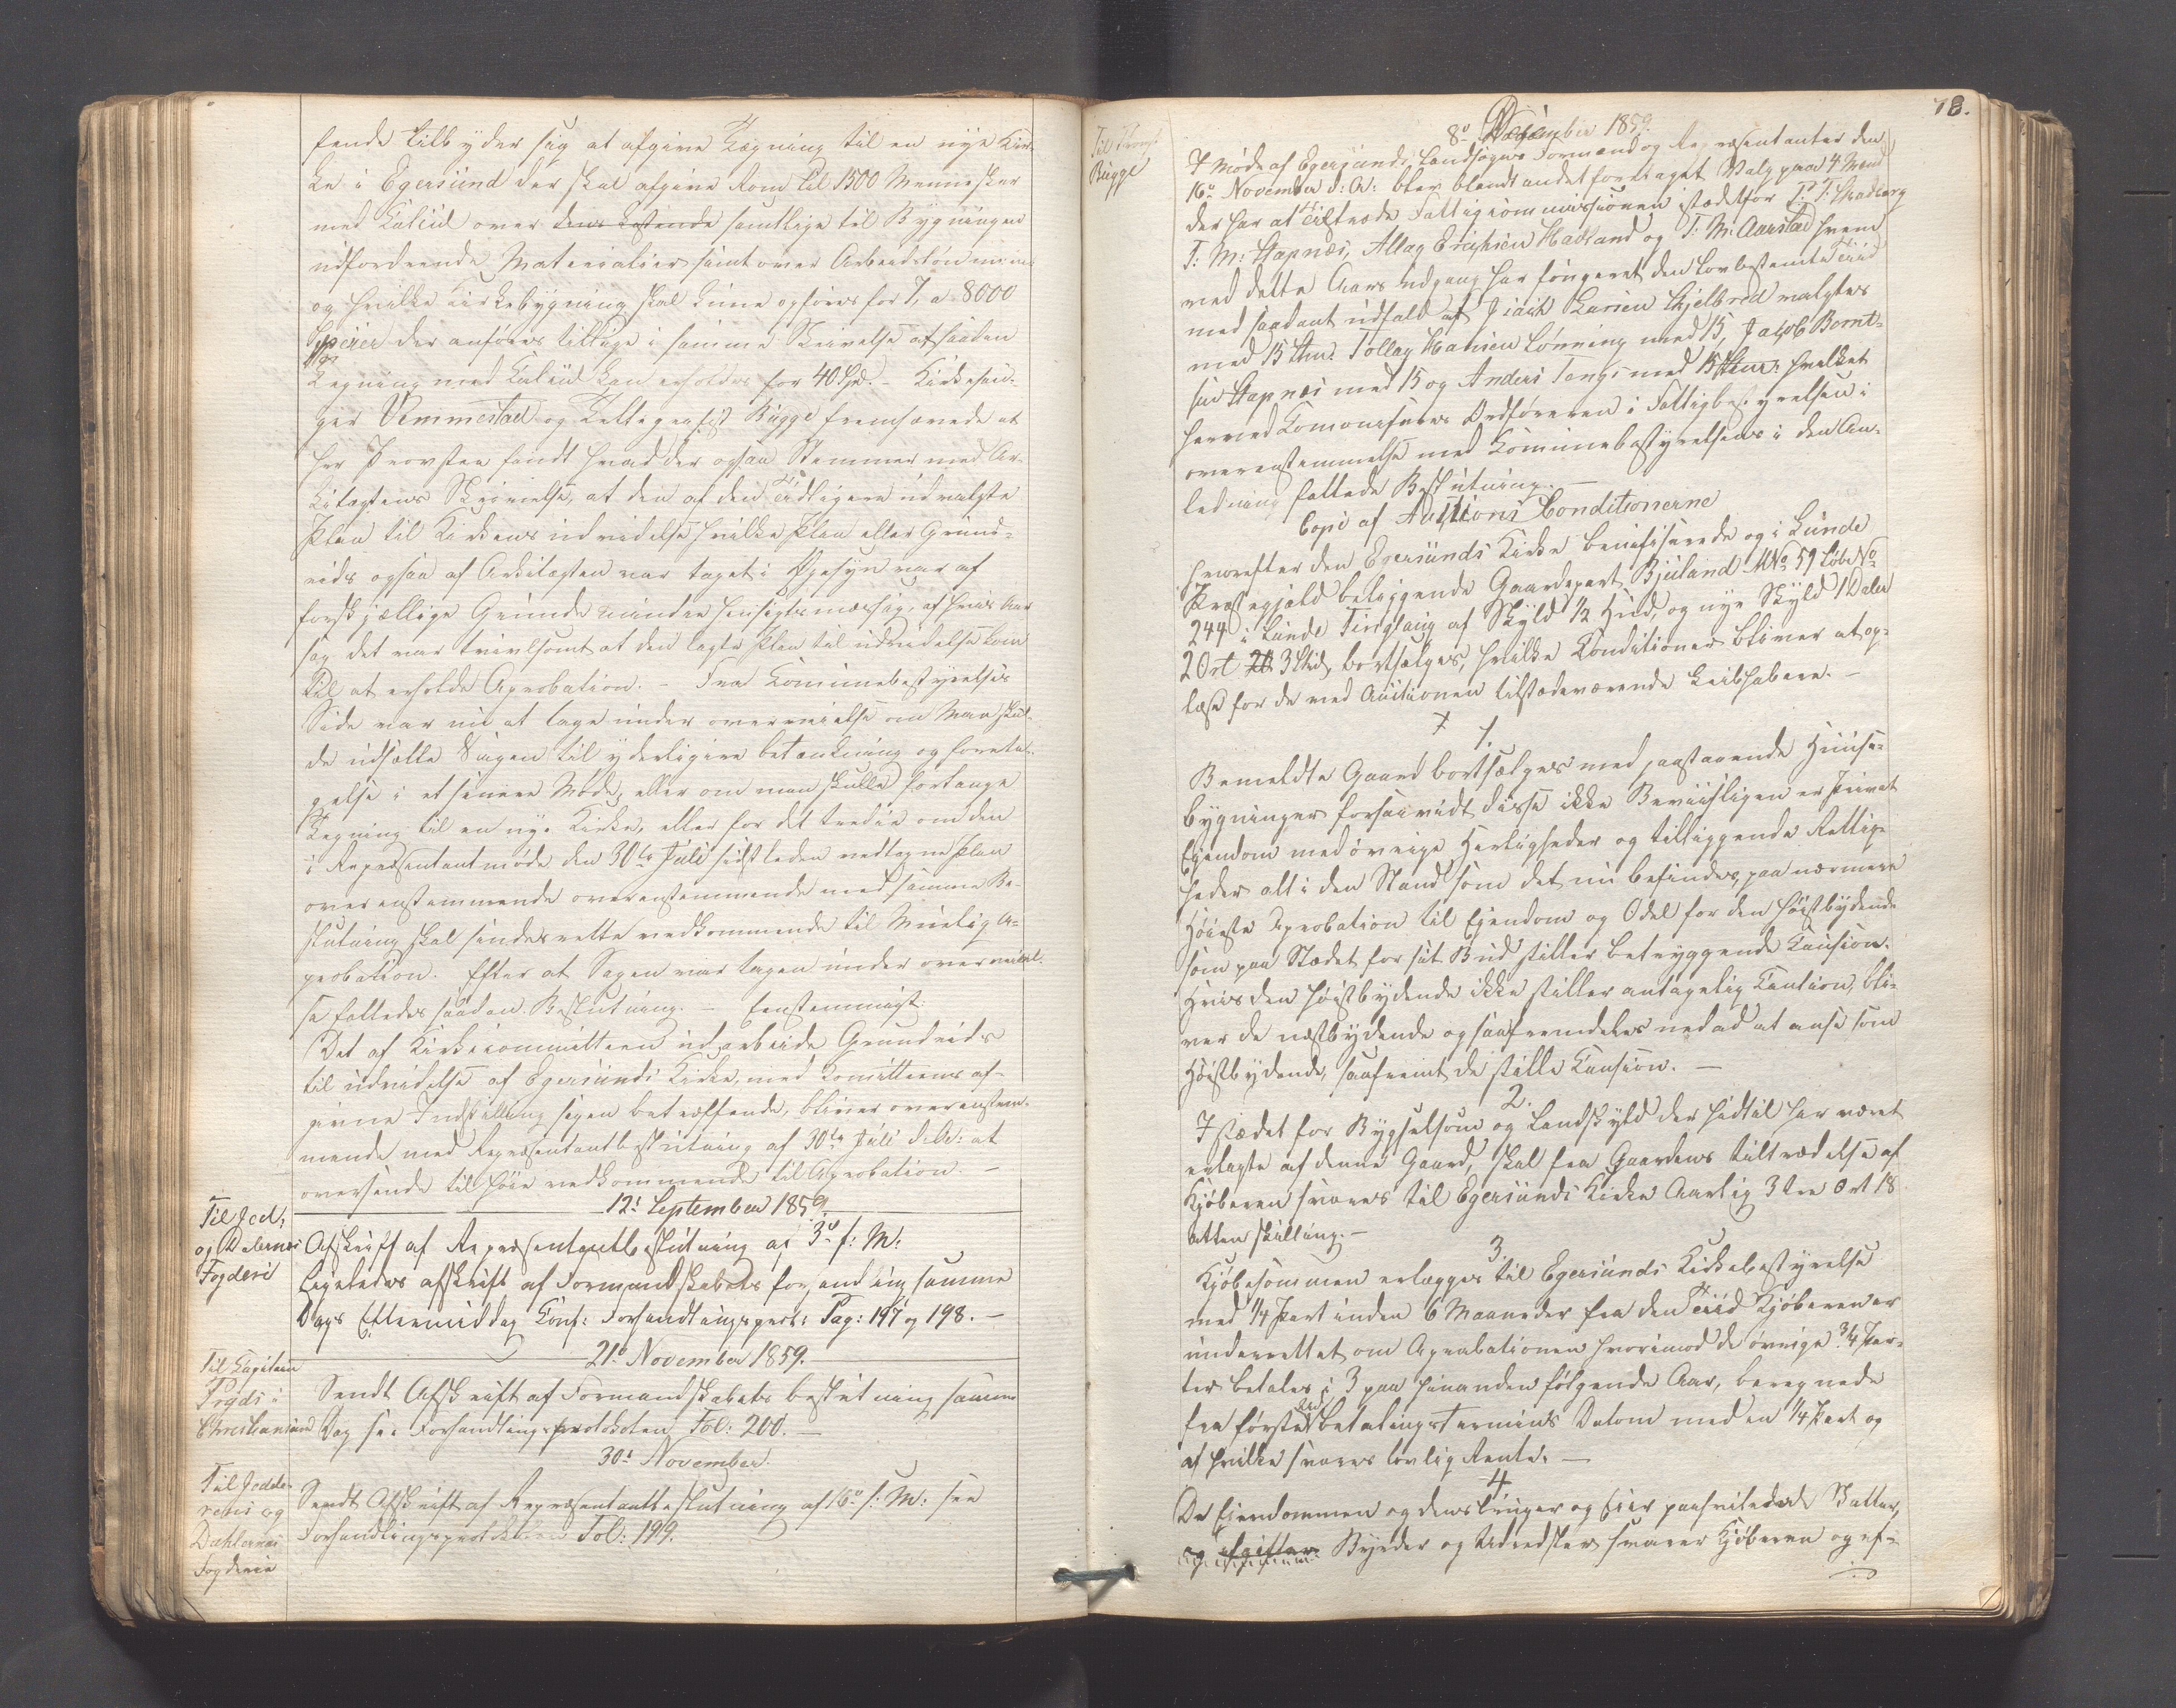 fende tilbyder sig at afgive Tegning til en nye Kir-
ke i Egersund der skal afgive Rom til 1500 Mennesker
med Kalkul over dens kostende samtlige til Bygningen
udfordrende Materialier samt over Arbeidslønninen
og hvilke Kirkebygning skal kune opføres for 7, a 8000
Specier der anføres tillige i samme Skrivelse at saadan
Tegning med Kalkul kan erholdes for 40 Spd. - Kirkesan-
ger Vemmestad og Bugge fremsævede at
Hr Provsten fandt hvad der ogsaa Stemmer med Ar-
kitegtens Skrivelse, at den af den tidligere udvalgte
Plan til Kirkens udvidelse hvilke Plan eller Grund-
rids ogsaa af Arkitegten var taget i Øjesyn var af
forskjællige Grunde mindre hensigtsmæssig, af hvis Aar
sag det var tvivlsomt at den lagte Plan til udvidelse kom
til at erholde Aprobation. - Fra Komunebestyrelses
Side var nu at tage under overveielse om Man skul-
de udsætte Sagen til yderligere betænkning og foreta-
gelse i et senere Møde, eller om man skulle forlange
Tegning til en nye Kirke, eller for det tredie om den
i Repræsentantmøde den 30te Juli sidstleden vedtagne Plan
overenstemmende overenstemmende med samme Be-
slutning skal sendes rette vedkommende til Muelig A-
probation. Efter at Sagen var tagen under overveiel-
se fattedes saadan Beslutning. - Eenstemmigt
Det af Kirkecommitteen udarbeide Grundrids
til udvidelse af Egersunds Kirke, med Komitteens af-
givne Indstilling sagen betreffende, bliver overenstem-
mende med Repræsentantbeslutning af 30te Juli d. A: at
oversende til høie vedkommende til Aprobation. -
12: September 1859.
Til Jed:
og Dalernes
Fogderi
Afskrift af Repræsentantbeslutning af 3o f: M:
Ligeledes afskrift af Formandskabets forhandling samme
Dags Eftermiddag Konf: Forhandlingsprot: Pag: 197 og 198. -
21o November 1859.
Til Kapitain
i
Christiansand
Sendt Afskrift af Formandskabets beslutning samme
Dag se: Forhandlingsprotokolen Fol: 200. -
30: November
Til Jedde-
rens og
Dahlernes
Fogderie
Sendt Afskrift af Repræsentantbeslutning af 16o f: M: see
Forhandlingsprotokolen Fol: 199.
18.
Til Provst
Bugge
8o December 1859.
I Møde af Egersunds Landsogns Formænd og Repræsentanter den
16o November d: A: blev blandt andet foretaget Valg paa 4 Mænd
der har at tiltræde Fattigcommissionen istedetfor T: T:
T: M: Stapnæs, Atlag Erichsen Hadland og T: M: Aarstad hvem
ved dette Aars Udgang har fungeret den lovbestemte Tiid
med saadant udfald at Isaik Larsen Skjelbred valgtes
med 15 Stm: Tollag Hansen Lønning med 15, Jacob Bornt-
sen Stapnæs med 15 og Anders Tengs med 15 Stemr: hvilket
herved Komoniseres Ordføreren i Fattigbestyrelsen i
overenstemmelse med Komunebestyrelsens i den An-
ledning fattede Beslutning. -
Copi af Auctions Conditionerne
hvorefter den Egersunds Kirke benifiserede og i Lunde
Præstegjeld beliggende Gaardepart Bjuland MNo 59 Løbe No
244 i Lunde Tinglaug af Skyld 1/2 Hud, og nye Skyld 1 Daler
2 Ort 3 Skid, bortsælges, hvilke Konditioner bliver at op-
læse for de ved Auctionen tilstædeværende Leibhabere. -
1.
Bemeldte Gaard bortsælges med paastaaende Huuse-
bygninger forsaavidt disse ikke Beviisligen er Privat
Ejendom med øvrige Herligheder og tilliggende Rettig-
heder alt i den Stand som det nu befindes, paa nærmere
Høieste Aprobation til Ejendom og Odel for den høistbydende
som paa Stedet for sit Bud stiller betryggende Kaution.
Hvis den høistbydende ikke stiller antagelig Kaution, bli-
ver de næstbydende og saa fremdeles nedad at anse som
Høistbydende, saafremt de stille Kaution. -
2.
Istædet for Bygselsum og Landskyld der hidtil har været
erlagte af denne Gaard, skal fra Gaardens tiltrædelse af
Kjøberen svares til Egersunds Kirke Aarlig 3 tre Ort 18
Atten Skilling. -
3.
Kjøbesommen erlægges til Egersunds Kirkebestyrelse
med 1/4 Part inden 6 Maaneder fra den Tiid Kjøberen er
underrettet om Aprobationen hvorimod de øvrige 3/4 Par-
ter betales i 3 paa hinanden følgende Aar, beregnede
fra første betalings Termins Datom med en 1/4 Part og
af hvilke svares lovlig Rente. -
4
De Ejendommen og dens bruger og Eier paahvilende Skatter,
og afgifter Byrder og Udredsler svarer Kjøberen og ef-